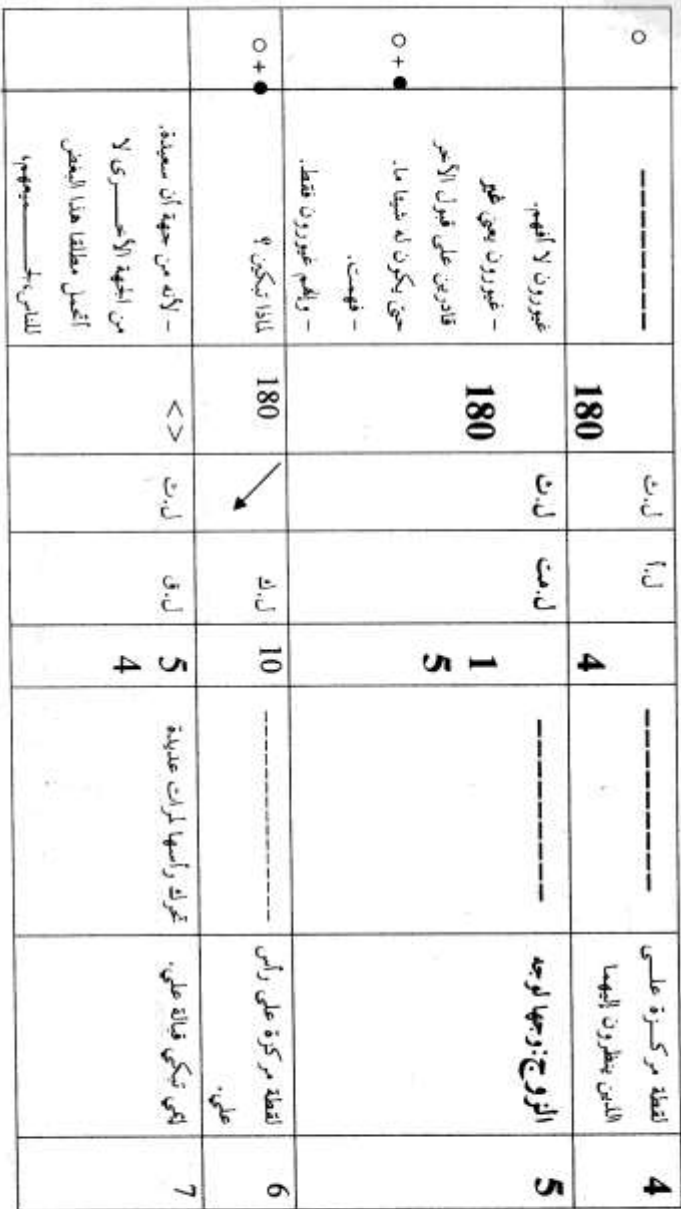 4
لقطة مركـزة علـى
اللذين ينظرون إليهما
---------
4
ل.أ
ل.ث
180
--------
○
5
الزوج:وجها لوجه
---------
1
5
ل.مت
ل.ث
180
غيورون لا أفهم.
- غيورون يعني غير
قادرين على قبول الآخر
حتى يكون له شيئا ما.
- فهمت.
- وإنهم غيورون فقط.
○ + ●
6
لقطة مركزة على رأس
علي.
-------------
10
ل.ك
↙
180
لماذا تبكين ؟
○ + ●
7
لامي تبكي قبالة علي.
تحرك رأسها لمرات عديدة
5
4
ل.ق
ل.ث
<>
- لأنه من جهة أن سعيدة.
من الجهة الأخـــرى لا
أتحمل مطلقا هذا البغض
للناس،جـــميعهم،